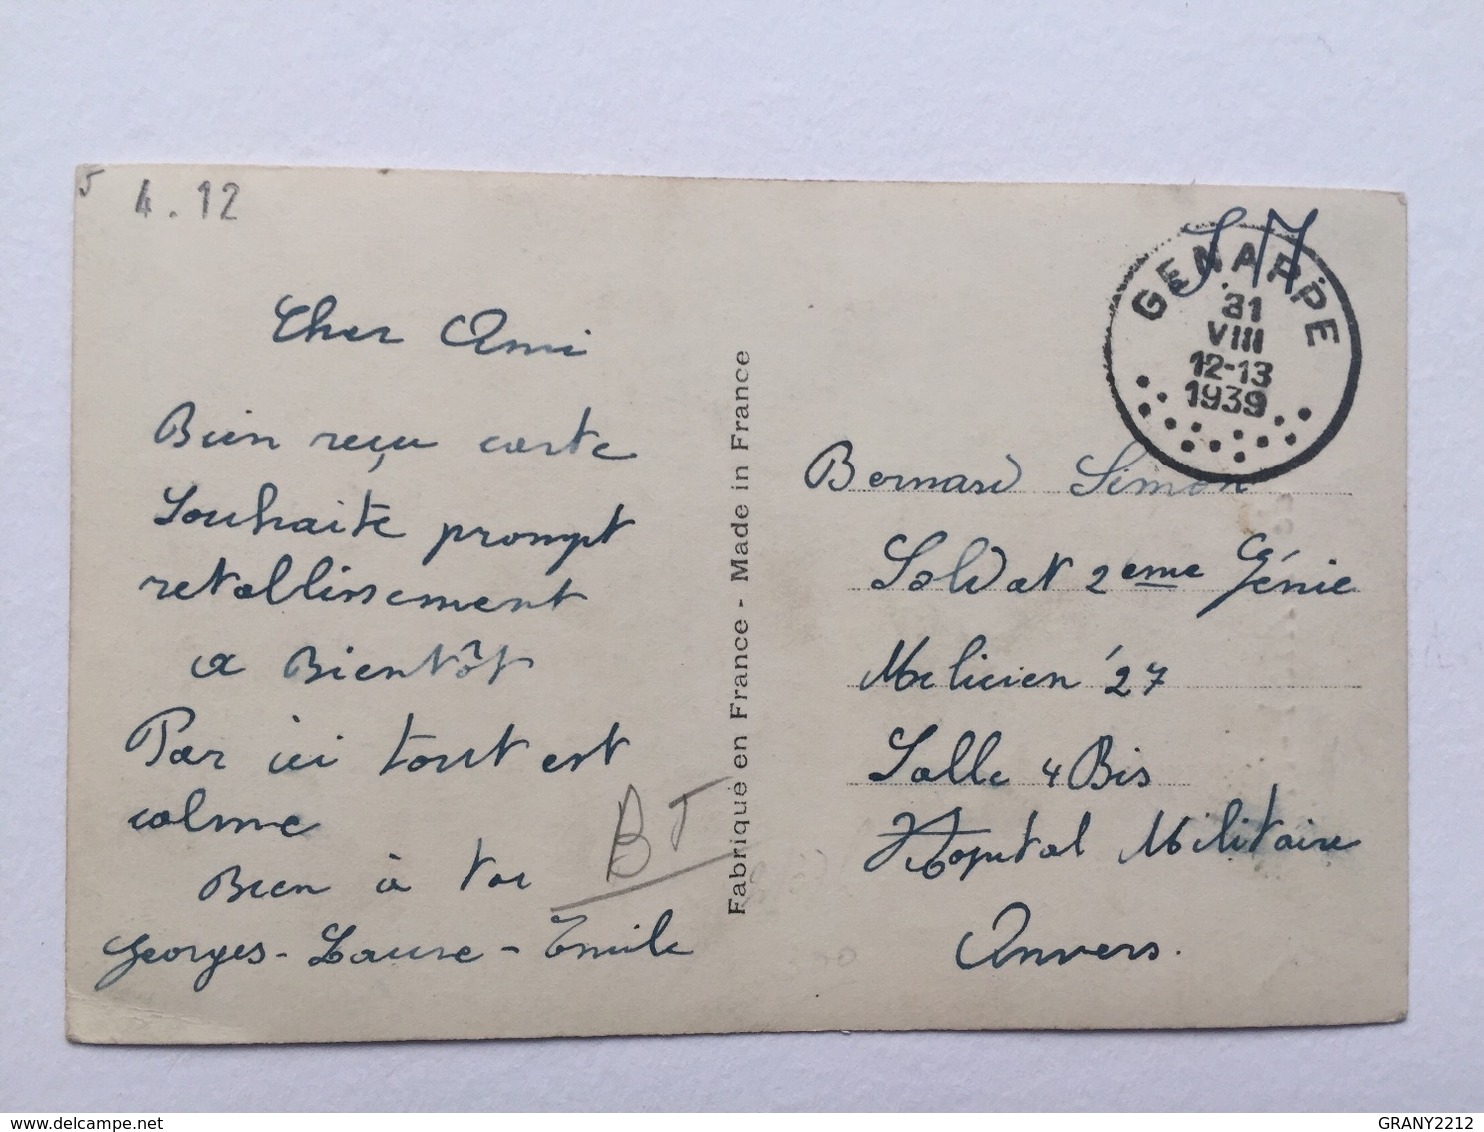 5 4.12
Cher Ami
Bien reçu carte
Souhaite prompt
retablissement
a Bientôt
Par ici tout est
calme
Bien à toi
Georges - Laure - Emile
BT
Fabriqué en France - Made in France
S.M
GENAPPE
31
VIII
12-13
1939
Bernard Simon
Soldat 2eme Génie
Milicien '27
Salle 4 Bis
Hopital Militaire
Anvers.
delcampe.net
GRANY2212